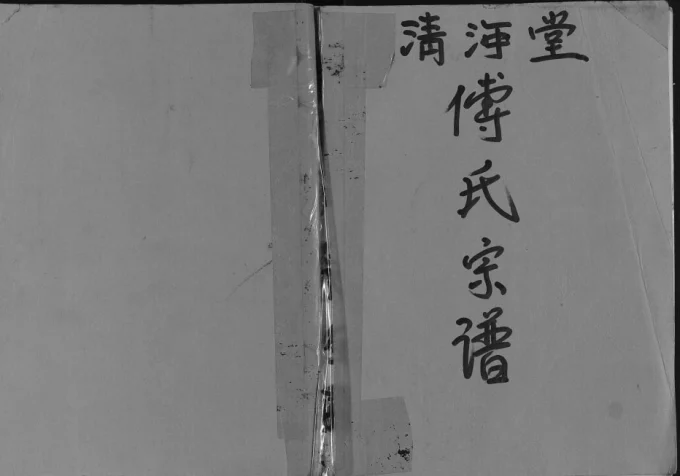 清河堂
傅氏宗谱